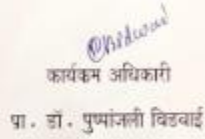 कार्यकम अधिकारी
प्रा. डॉ. पुष्पांजली विडवाई